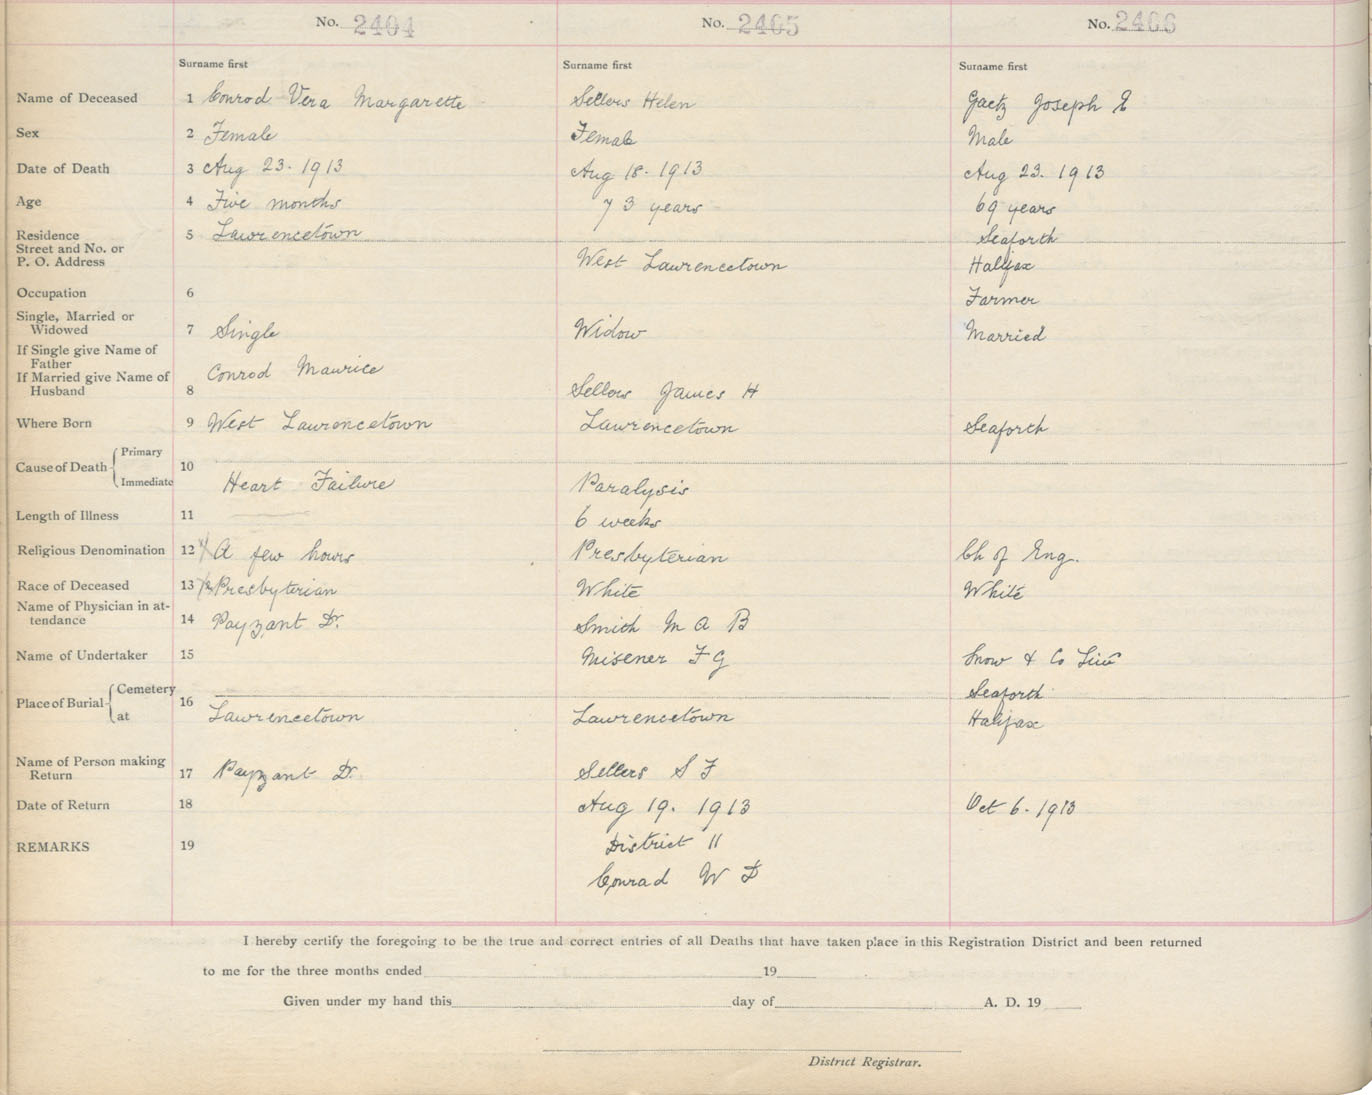 No. 2404 No. 2405 No. 2406
Surname first Surname first Surname first
Name of Deceased 1 Conrod Vera Margarette Sellers Helen Gaetz Joseph E
Sex 2 Female Female Male
Date of Death 3 Aug 23. 1913 Aug 18. 1913 Aug 23. 1913
Age 4 Five months 73 years 69 years
Residence 5 Lawrencetown Seaforth
Street and No. or
P. O. Address West Lawrencetown Halifax
Occupation 6 Farmer
Single, Married or
Widowed 7 Single Widow Married
If Single give Name of
Father Conrod Maurice
If Married give Name of
Husband 8 Sellers James H
Where Born 9 West Lawrencetown Lawrencetown Seaforth
Cause of Death 10 Primary
Immediate Heart Failure Paralysis
Length of Illness 11 6 weeks
Religious Denomination 12 A few hours Presbyterian Ch of Eng.
Race of Deceased 13 Presbyterian White White
Name of Physician in at-
tendance 14 Payzant Dr. Smith M A B
Name of Undertaker 15 Misener F G Snow & Co
Place of Burial 16 Cemetery Seaforth
at Lawrencetown Lawrencetown Halifax
Name of Person making
Return 17 Payzant Dr. Sellers S F
Date of Return 18 Aug 19. 1913 Oct 6. 1913
REMARKS 19 District 11
Conrad W D
I hereby certify the foregoing to be the true and correct entries of all Deaths that have taken place in this Registration District and been returned
to me for the three months ended 19
Given under my hand this day of A. D. 19
District Registrar.